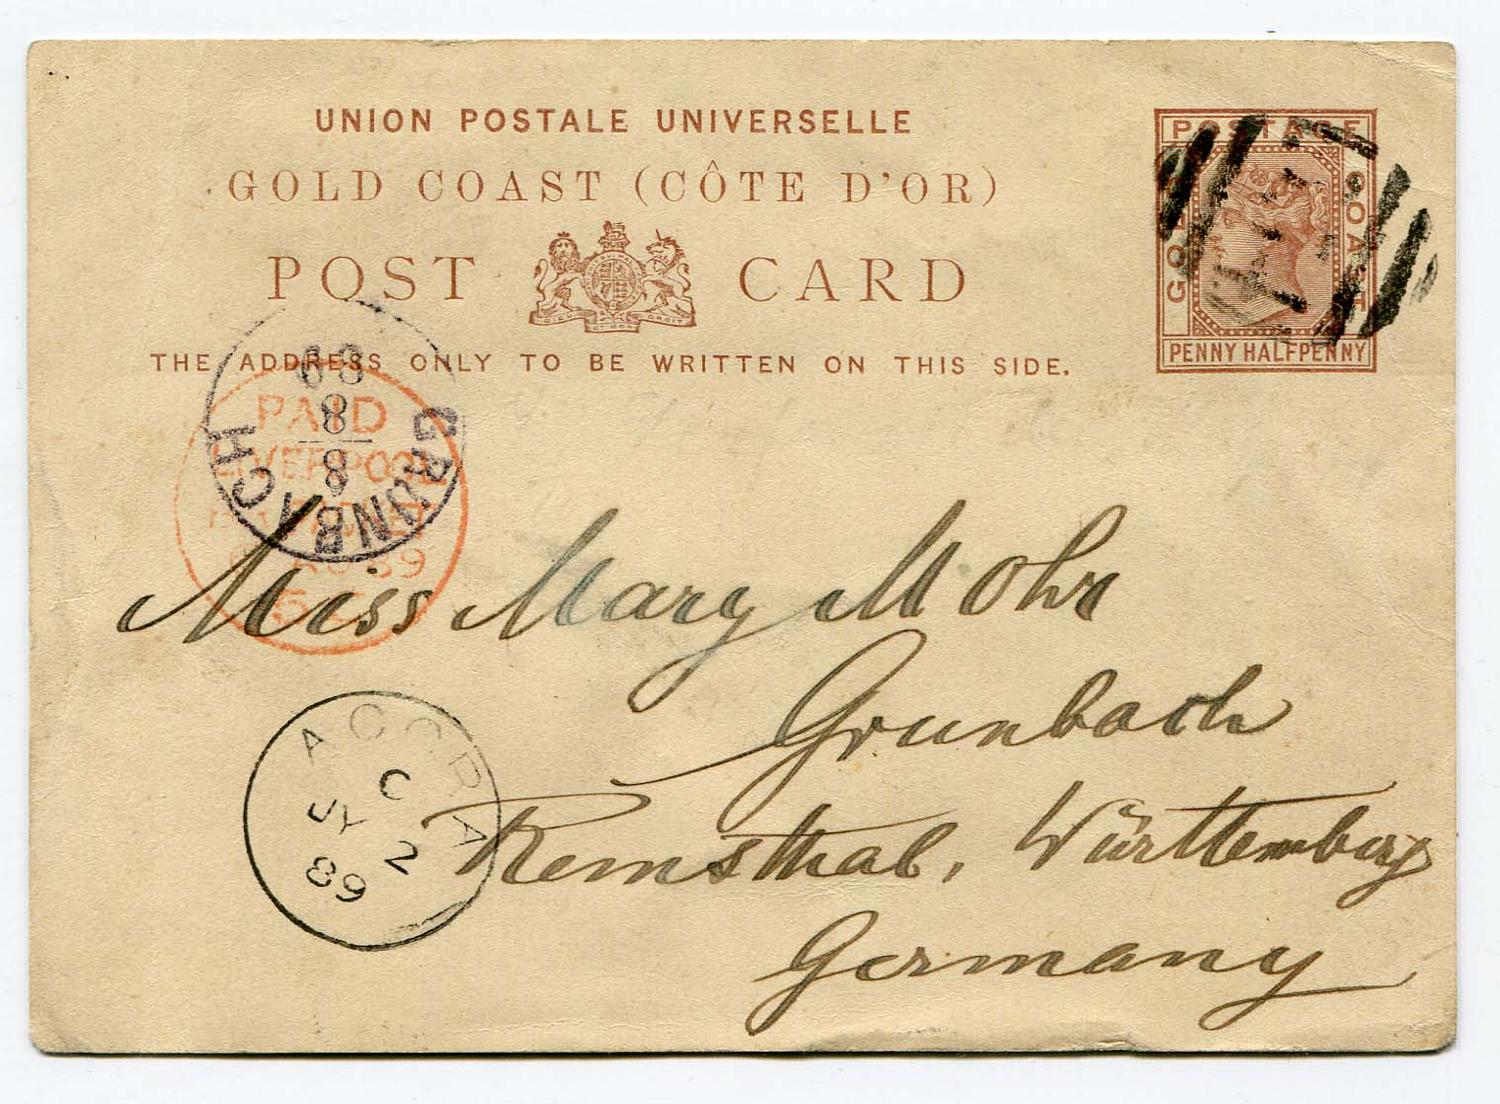 UNION POSTALE UNIVERSELLE
GOLD COAST (CÔTE D'OR)
POST CARD
THE ADDRESS ONLY TO BE WRITTEN ON THIS SIDE.
POSTAGE
GOLD COAST
PENNY HALFPENNY
GRUNBACH
8
8
89
PAID
LIVERPOOL
89
Miss Mary Mohr
Grunbach
Remsthal, Württemberg
Germany
ACCRA
C
JY 2
89